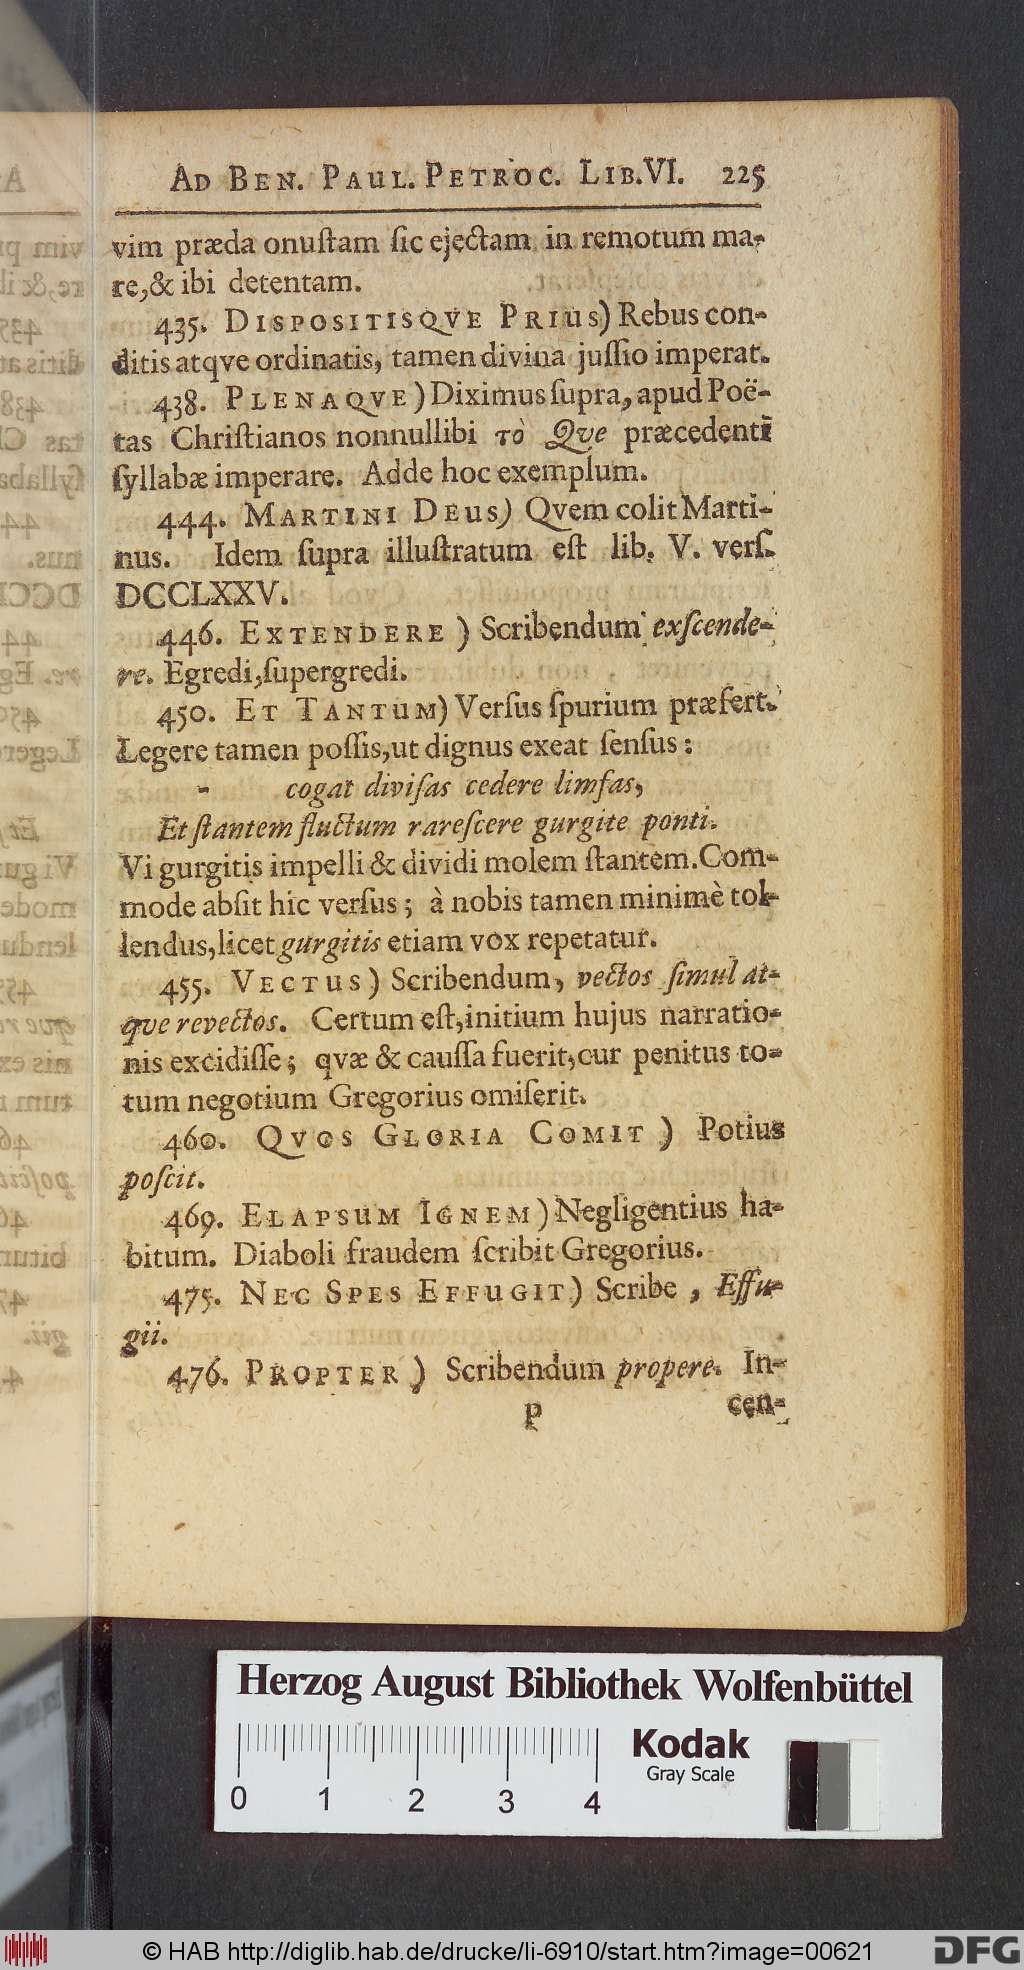 AD BEN. PAUL. PETROC. LIB.VI. 225
vim præda onuſtam ſic ejectam in remotum ma-
re,& ibi detentam.
435. DISPOSITISQVE PRIUS) Rebus con-
ditis atqve ordinatis, tamen divina juſſio imperat.
438. PLENAQVE) Diximus ſupra, apud Poë-
tas Chriſtianos nonnullibi τὸ Qve præcedenti
ſyllabæ imperare. Adde hoc exemplum.
444. MARTINI DEUS) Qvem colit Marti-
nus. Idem ſupra illuſtratum eſt lib. V. verſ.
DCCLXXV.
446. EXTENDERE ) Scribendum exſcende-
re. Egredi,ſupergredi.
450. ET TANTUM) Verſus ſpurium præfert.
Legere tamen poſſis,ut dignus exeat ſenſus:
- cogat diviſas cedere limfas,
Et ſtantem fluctum rareſcere gurgite ponti.
Vi gurgitis impelli & dividi molem ſtantem. Com-
mode abſit hic verſus; à nobis tamen minimè tol-
lendus,licet gurgitis etiam vox repetatur.
455. VECTUS) Scribendum, vectos ſimul at-
que revectos. Certum eſt,initium hujus narratio-
nis excidiſſe; qvæ & cauſſa fuerit,cur penitus to-
tum negotium Gregorius omiſerit.
460. QVOS GLORIA COMIT ) Potius
poſcit.
469. ELAPSUM IGNEM) Negligentius ha-
bitum. Diaboli fraudem ſcribit Gregorius.
475. NEC SPES EFFUGIT) Scribe, Effu-
gii.
476. PROPTER ) Scribendum propere. In-
p cen-
Herzog August Bibliothek Wolfenbüttel
Kodak
Gray Scale
0 1 2 3 4
© HAB http://diglib.hab.de/drucke/li-6910/start.htm?image=00621
DFG